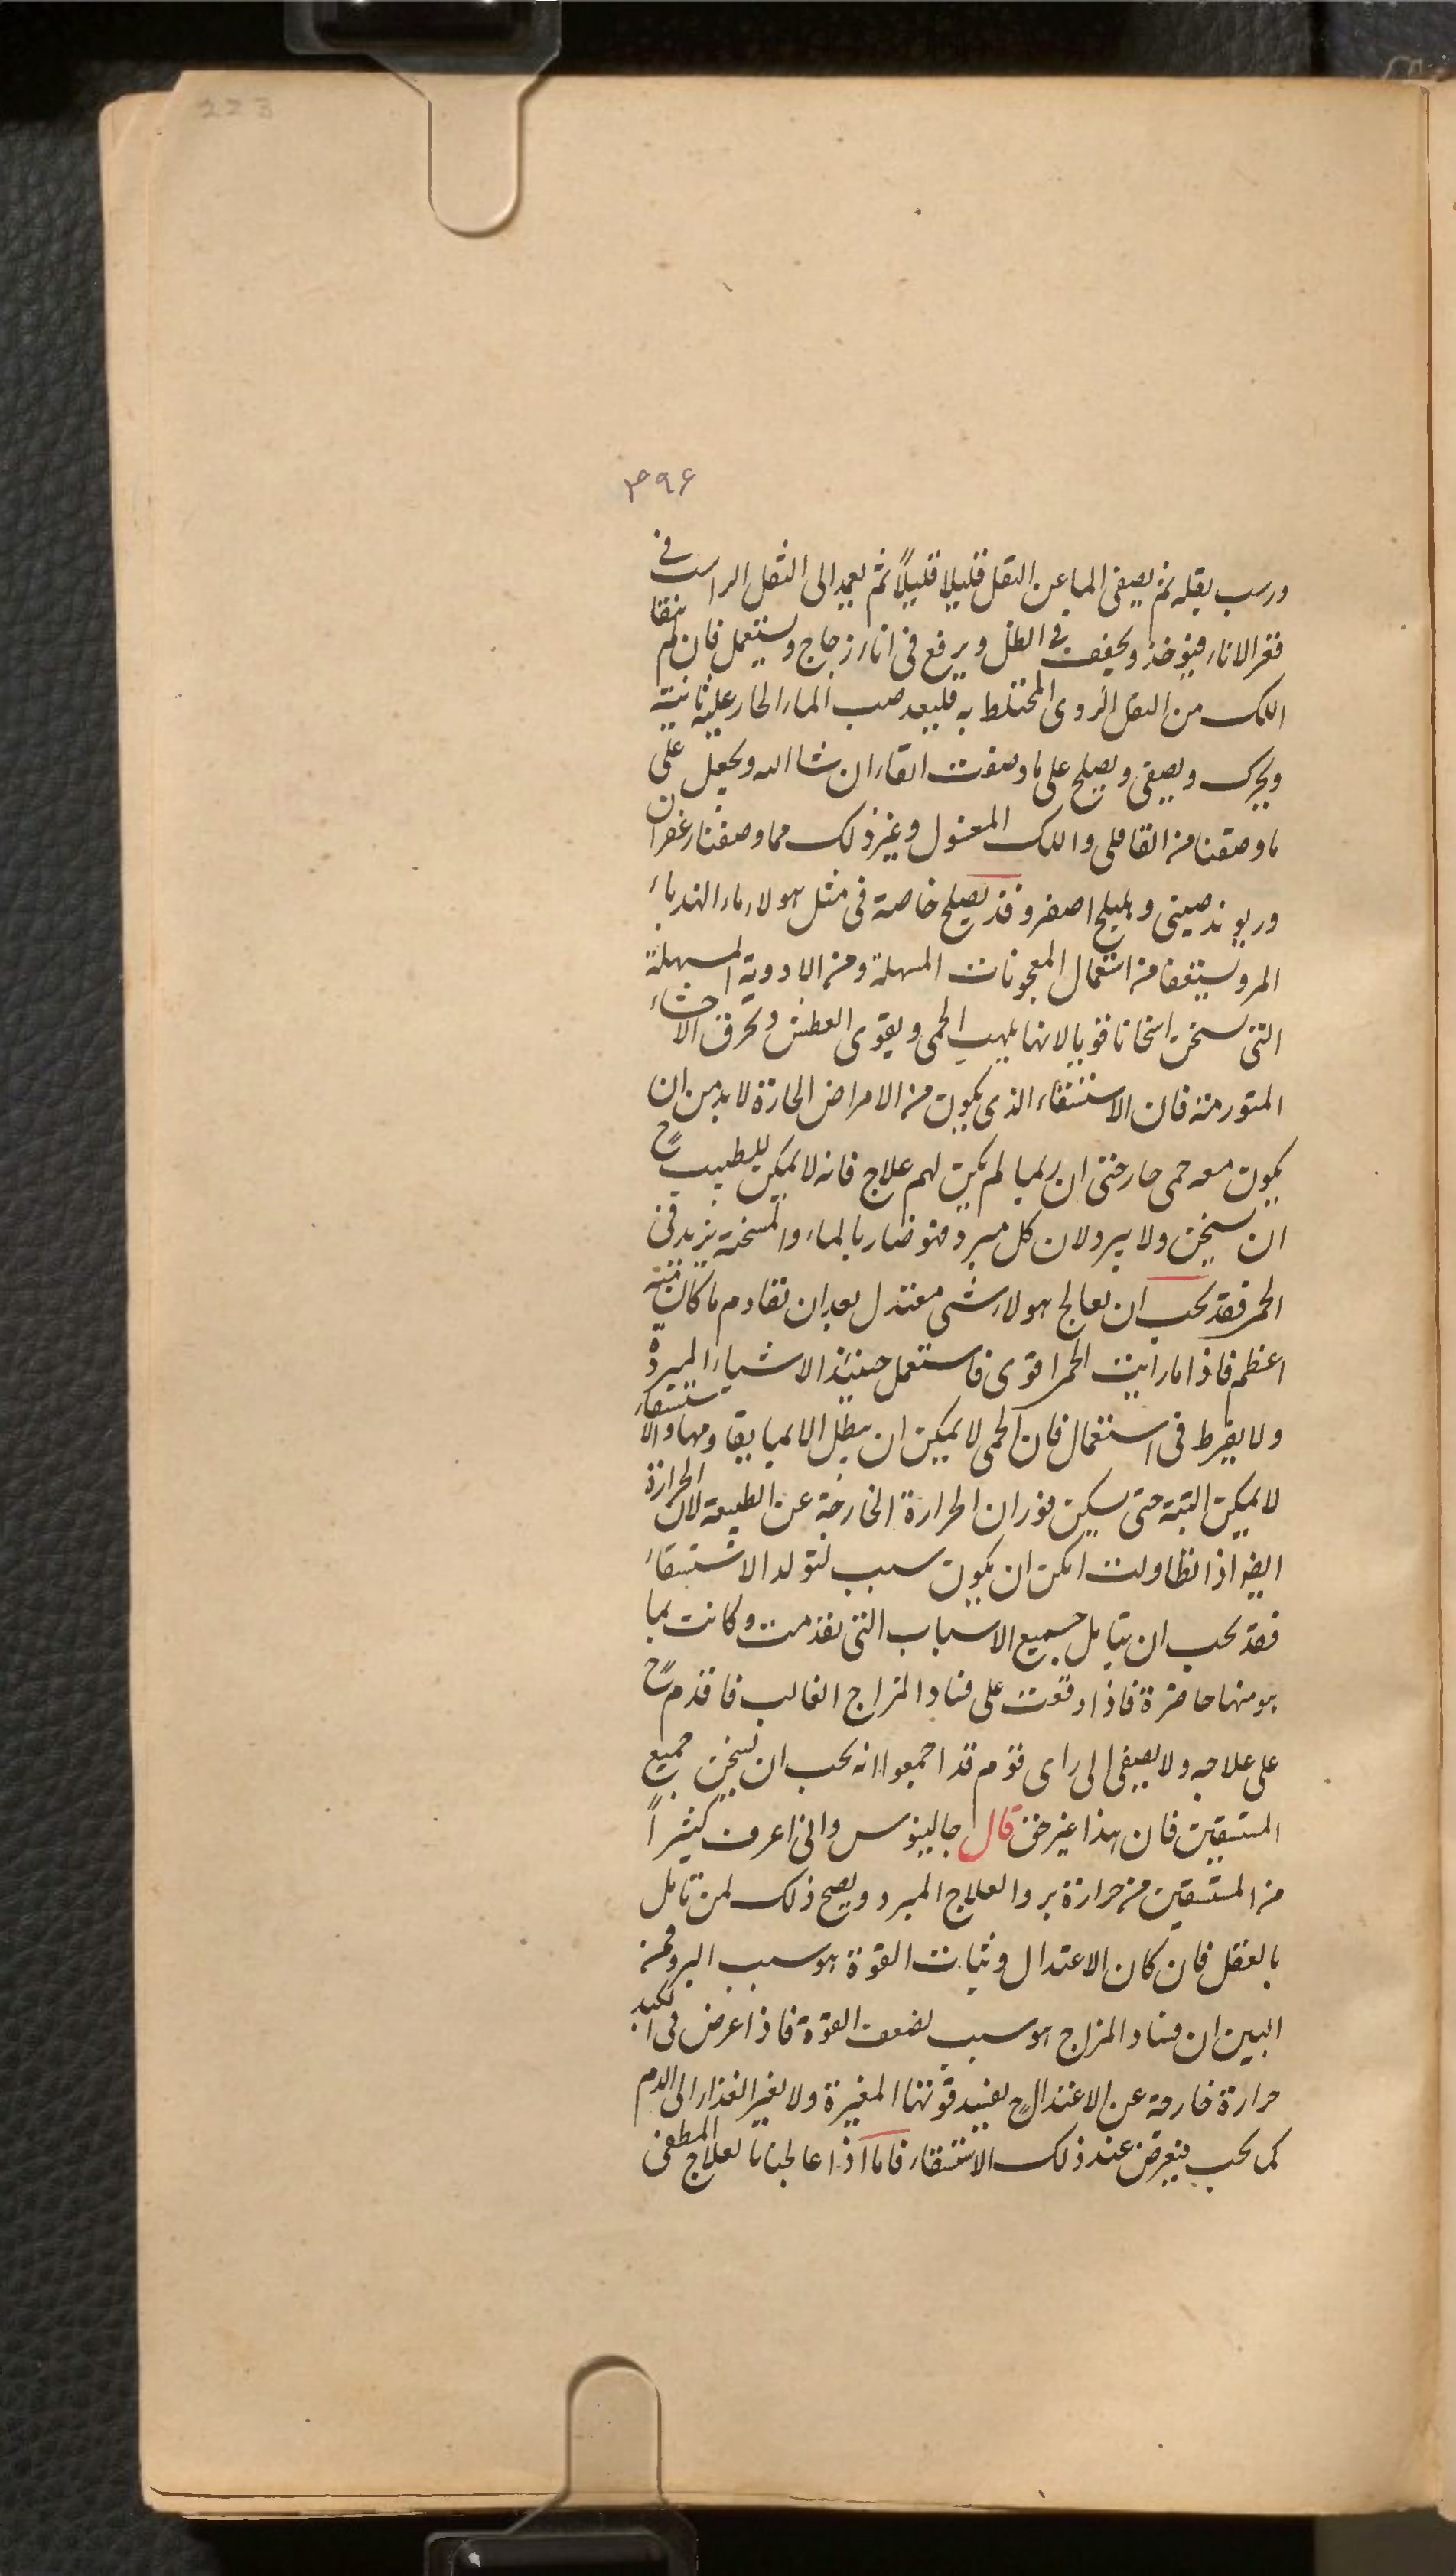 223
۳۹۶
ورسب بقله ثم يصفى الما عن الثقل قليلا قليلاً ثم يعمد الى الثقل الراسب فى
قعر الاناء فيوخذ ويجفف فى الظل ويرفع فى اناء زجاج ويستعمل فان لم ينقا
اللك من الثقل الردى المختلط به فليعد صب الماء الحار عليه ثانية
ويحرك ويصفى ويصلح على ما وصفت انقاء ان شا الله ويجعل على
ما وصفنا من القاقلى واللك المغسول وغير ذلك مما وصفنا زعفران
وريوند صينى وهليلج اصفر وقد يصلح خاصة فى مثل هولاء ماء الهندباء
المر ويستعفا من استعمال المعجونات المسهلة ومن الادوية المسهلة
التى تسخن اسخانا قويا لانها يلهب الحمى ويقوى العطش ويحرق الاحشاء
المتورمة فان الاستسقاء الذى يكون من الامراض الحارة لا بد من ان
يكون معه حمى حار حتى ان ربما لم يكن لهم علاج فانه لا يمكن للطبيب ح
ان يسخن ولا يبرد لان كل مبرد فهو ضار بالماء والمسخنة يزيد فى
الحمر فقد يجب ان يعالج هولاء بشى معتدل بعد ان تقاوم ما كان منه
اعظم فاذا ما رايت الحمرا قوى فاستعمل حينئذ الاشياء المبردة
ولا يفرط فى استعمال فان الحمى لا يمكن ان يبطل الا بما يقاومها والاستسقاء
لا يمكن البتة حتى يسكن فوران الحرارة الخارجة عن الطبيعة لان الحرارة
ايضا اذا تطاولت امكن ان يكون سبب لتولد الاستسقاء
فقد يجب ان يتامل جميع الاسباب التى تقدمت وكانت بما
هو منها حاضرة فاذا وقعت على فساد المزاج الغالب فاقدم ح
على علاجه ولا يصغى الى راى قوم قد اجمعوا انه يجب ان يسخن جميع
المستسقين فان هذا غير حق قال جالينوس وانى اعرف كثيراً
من المستسقين من حرارة بروا لعلاج المبرد ويصح ذلك لمن تامل
بالعقل فان كان الاعتدال وثبات القوة هو سبب البرو فمن
البين ان فساد المزاج هو سبب لضعف القوة فاذا عرض فى الكبد
حرارة خارجة عن الاعتدال ح يفسد قوتها المغيرة ولا يغير الغذاء الى الدم
كما يجب فيعرض عند ذلك الاستسقاء فاما اذا عالجنا بالعلاج المطفى